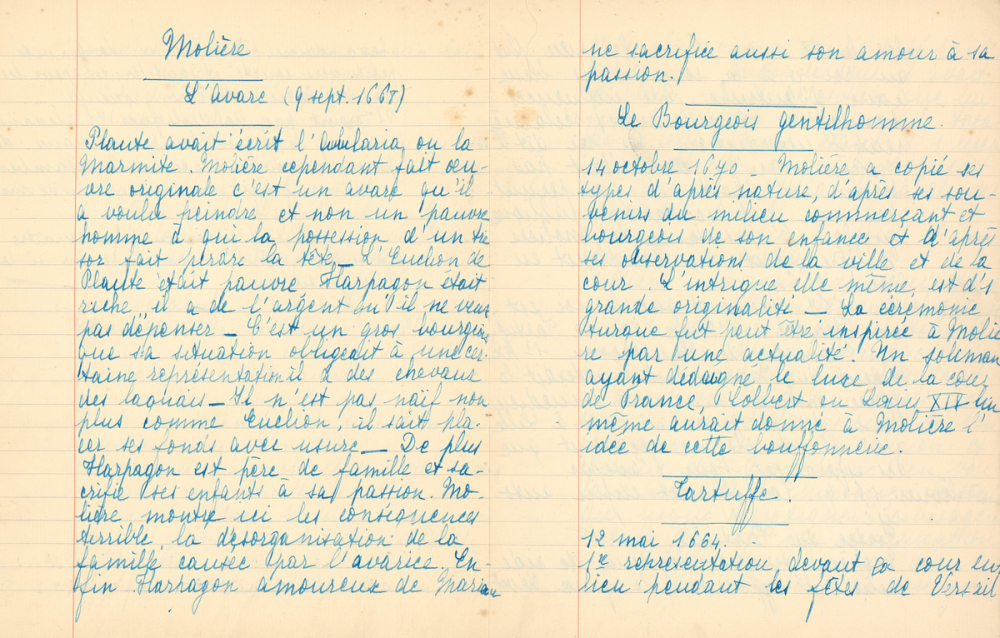 Molière
L'Avare (9 sept. 1668)
Plaute avait écrit l'Aulularia ou la
Marmite. Molière cependant fait œu-
vre originale c'est un avare qu'il
a voulu peindre et non un pauvre
homme à qui la possession d'un tré
sor fait perdre la tête – L'Euclion de
Plaute était pauvre Harpagon était
riche, il a de l'argent qu'il ne veut
pas dépenser – C'est un gros bourgeois
que sa situation obligeait à une cer-
taine représentation il a des chevaux
des laquais – Il n'est pas naïf non
plus comme Euclion, il sait pla-
cer ses fonds avec usure – De plus
Harpagon est père de famille et sa-
crifie ses enfants à sa passion. Mo-
lière montre ici les conséquences
terrible, la désorganisation de la
famille causée par l'avarice. En-
fin Harpagon amoureux de Marian
ne sacrifice aussi son amour à sa
passion.
Le Bourgeois gentilhomme.
14 octobre 1670 – Molière a copié ses
types d'après nature, d'après ses sou-
venirs du milieu commerçant et
bourgeois de son enfance et d'après
ses observations de la ville et de la
cour. L'intrigue elle même est d's
grande originalité – La cérémonie
turque fut peut être inspirée à Moliè
re par une actualité. Un soliman
ayant dédaigné le luxe de la cour
de France, Colbert ou Louis XIV lui
même aurait donné à Molière l'
idée de cette bouffonnerie.
Tartuffe.
12 mai 1664.
1re représentation devant la cour en
lieu pendant les fêtes de Versail